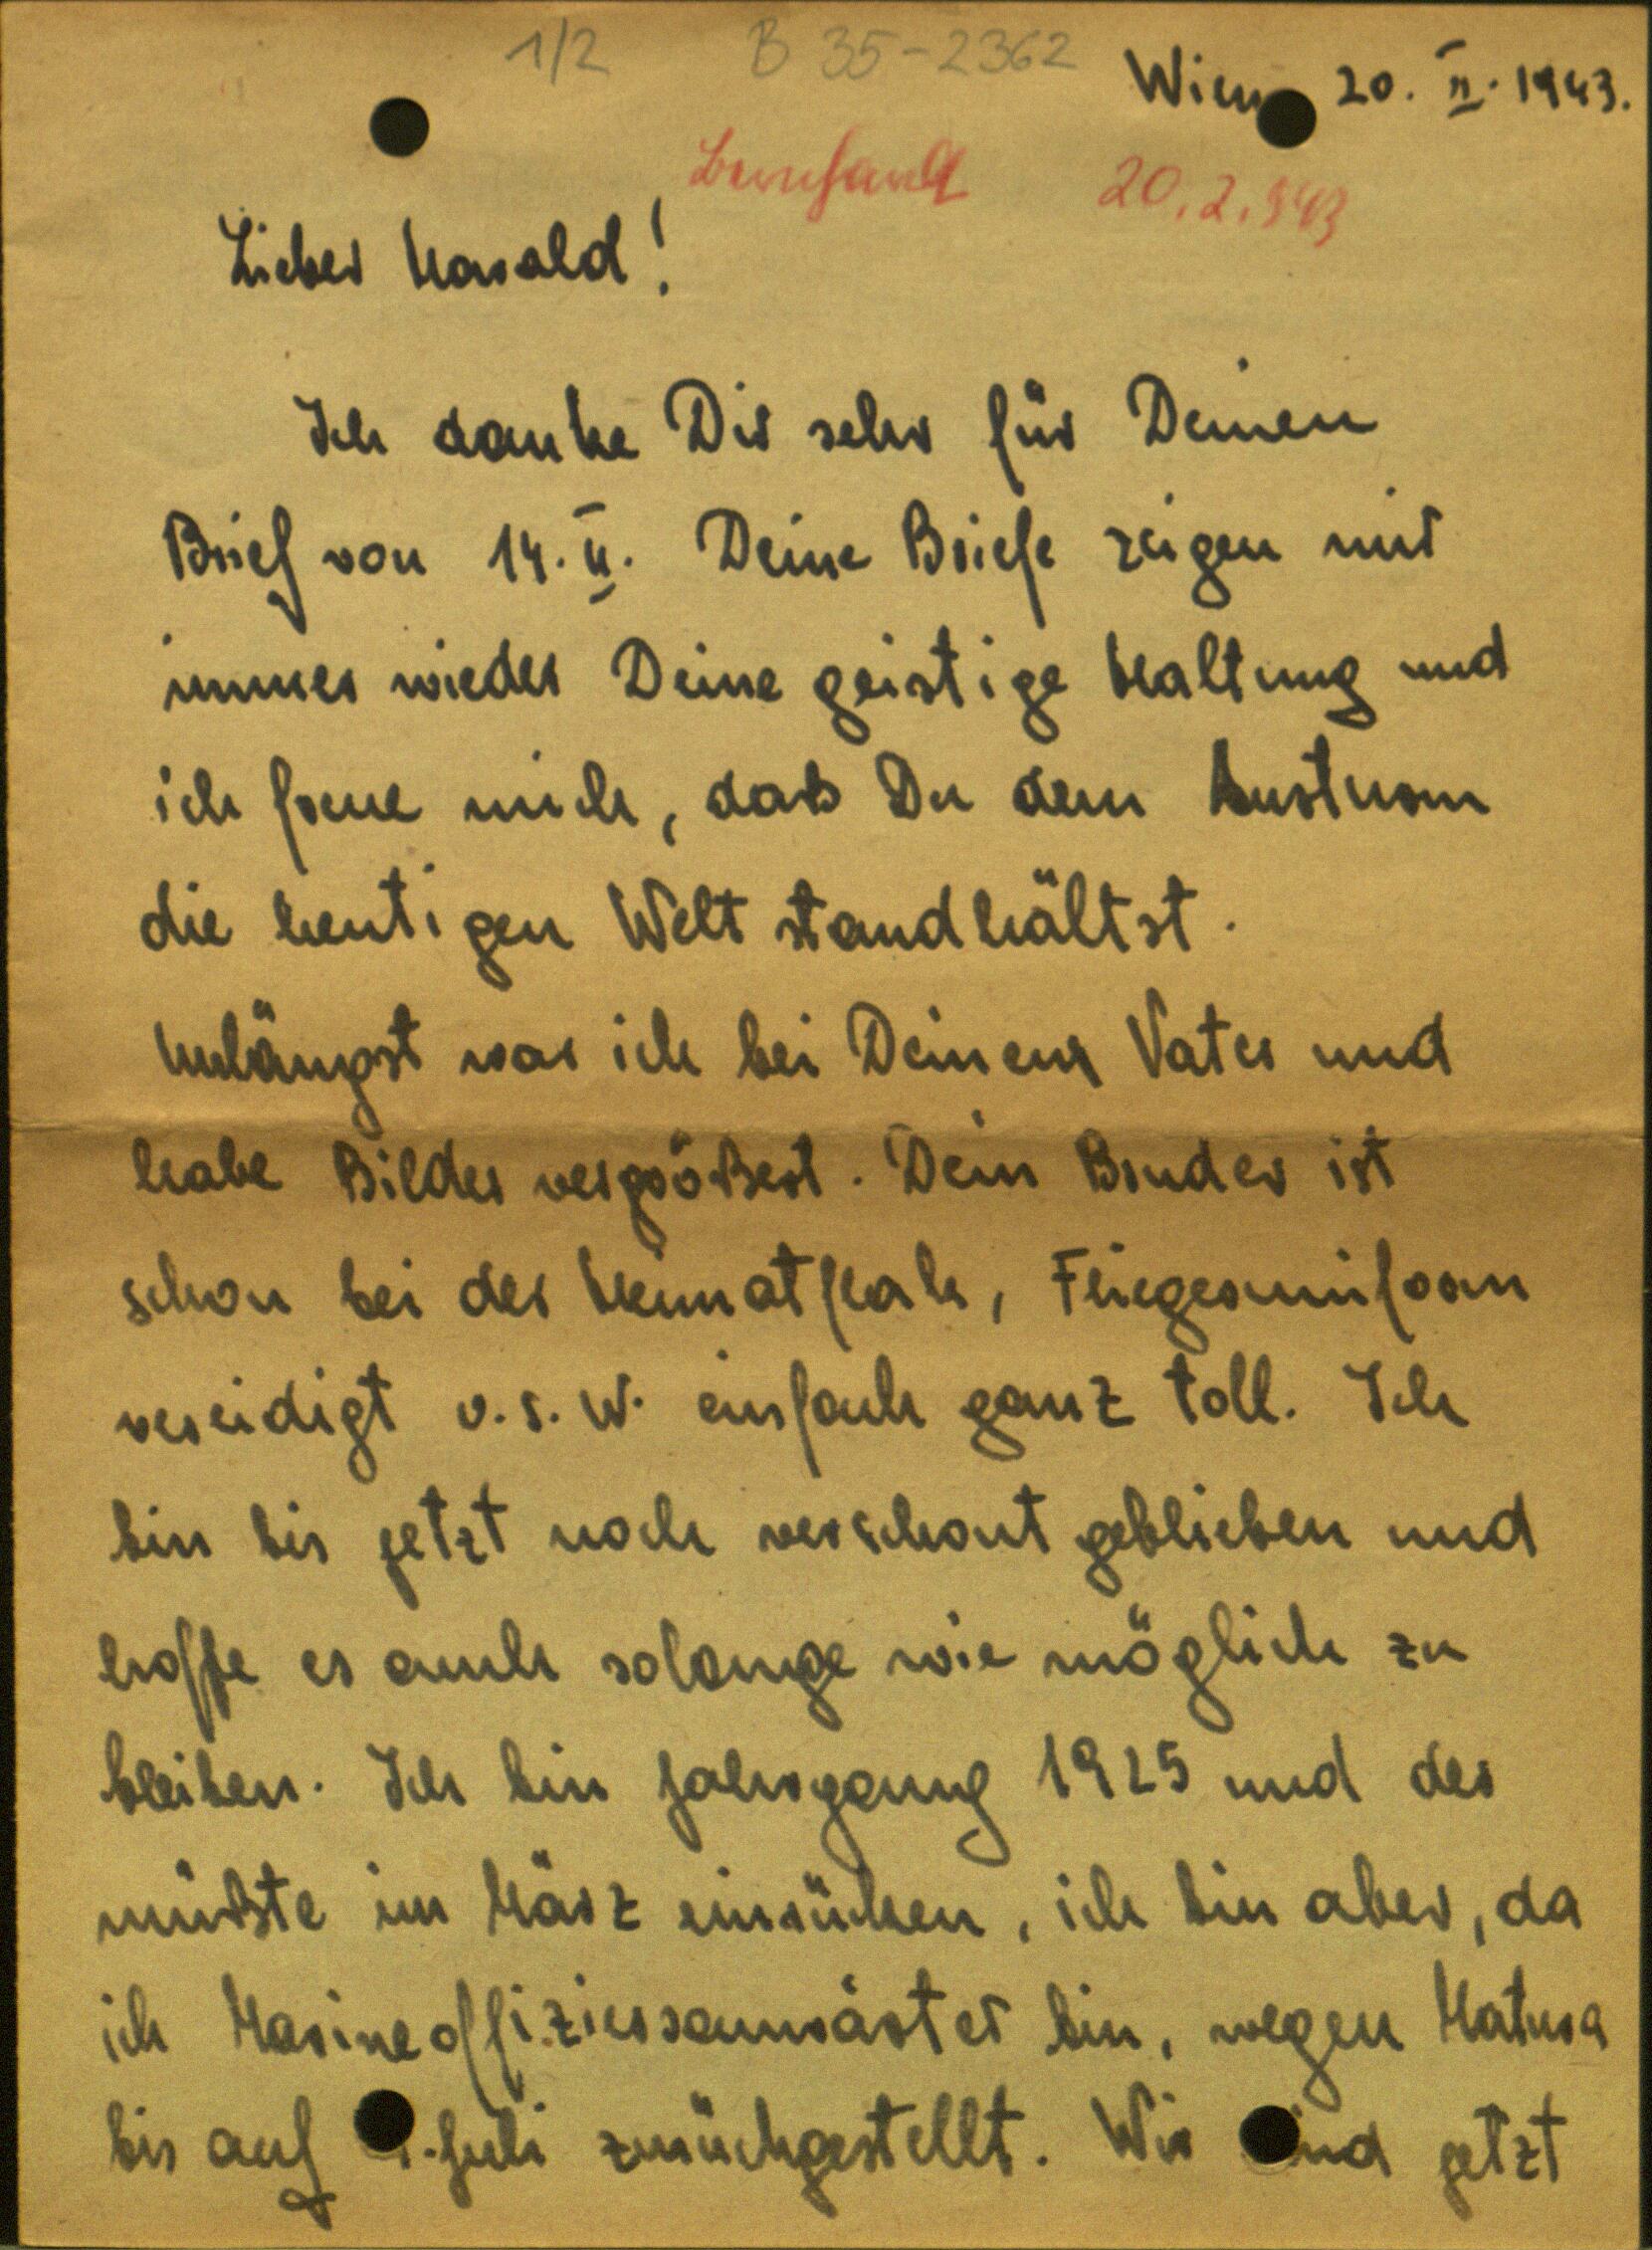 1/2 B 35-2362
Wien 20. II. 1943.
20.2.943
Lieber Harald!
Ich danke Dir sehr für Deinen
Brief von 14. II. Deine Briefe zeigen mir
immer wieder Deine geistige Haltung und
ich freue mich, daß Du dem Ansturm
die heutigen Welt standhältst.
Unlängst war ich bei Deinem Vater und
habe Bilder vergrößert. Dein Bruder ist
schon bei der Heimatflak, Fliegeruniform
vereidigt u.s.w. einfach ganz toll. Ich
bin bis jetzt noch verschont geblieben und
hoffe es auch solange wie möglich zu
bleiben. Ich bin Jahrgang 1925 und der
müßte im März einrücken, ich bin aber, da
ich Marineoffiziersanwärter bin, wegen Matura
bis auf 1. Juli zurückgestellt. Wir sind jetzt